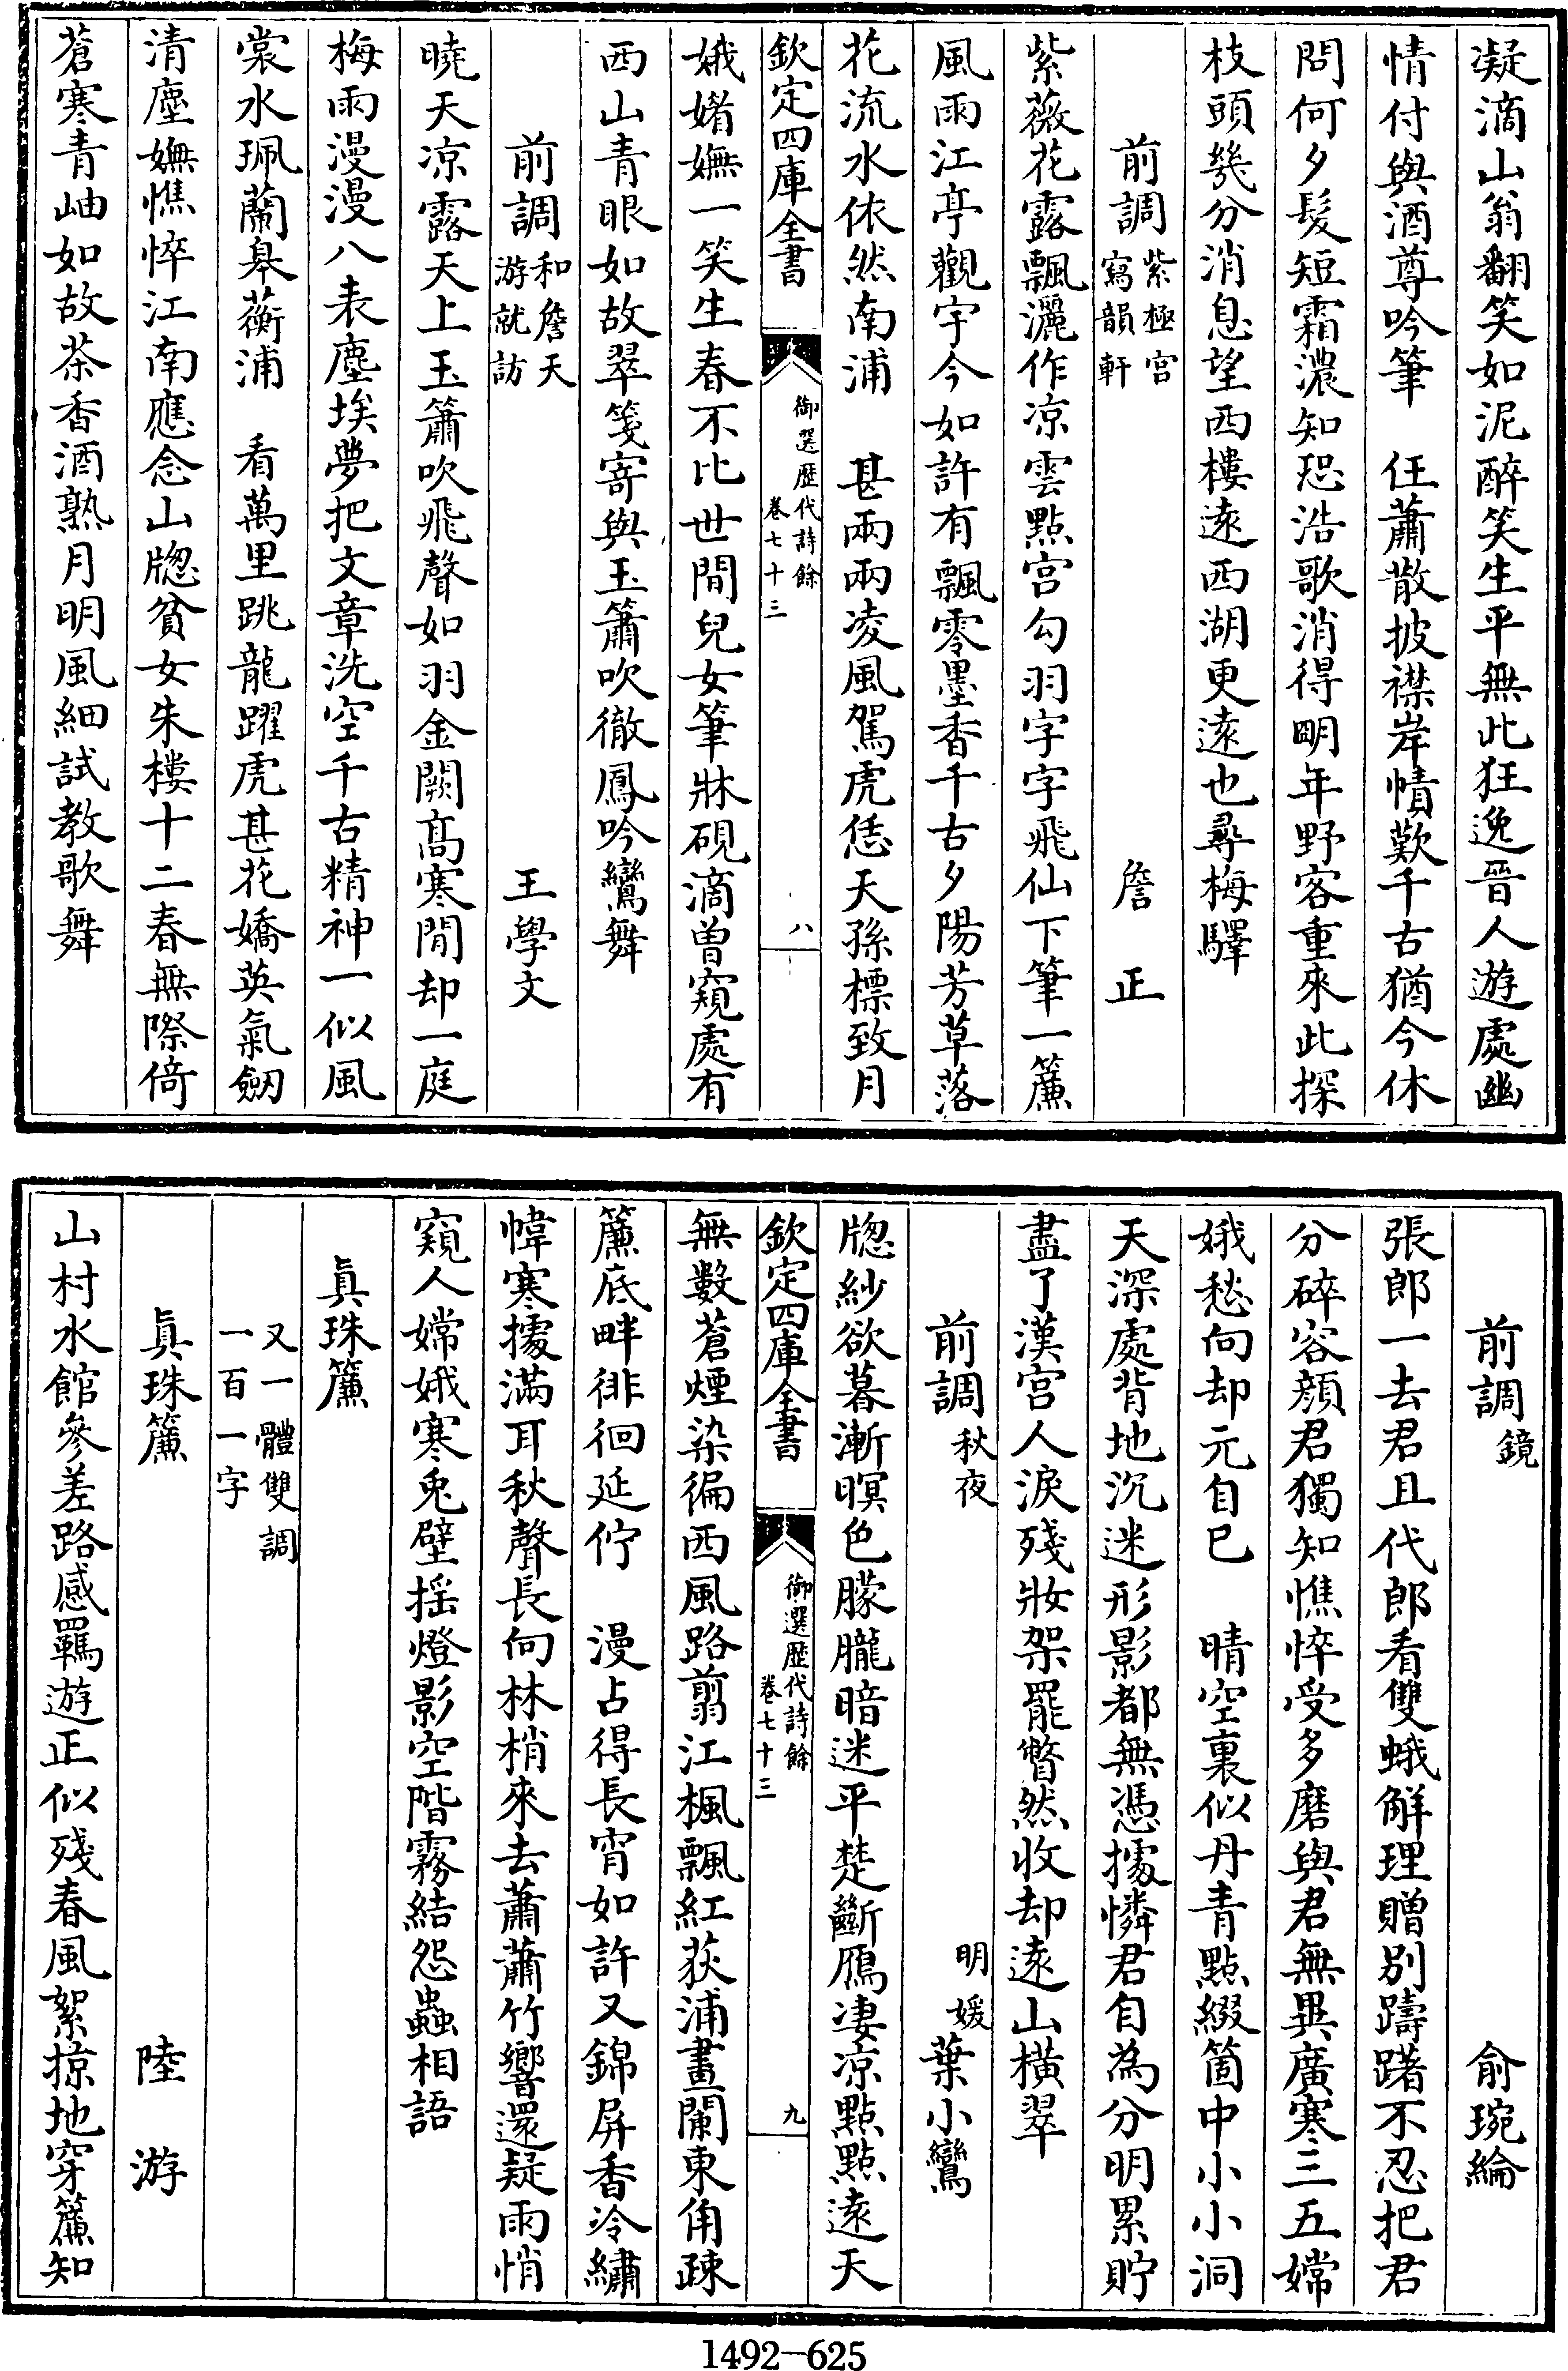 凝滴山翁翻笑如泥醉笑生平無此狂逸晉人遊處幽
情付與酒尊吟筆　任蕭散披襟岸幘歎千古猶今休
問何夕髮短霜濃知恐浩歌消得明年野客重來此探
枝頭幾分消息望西樓遠西湖更遠也尋梅驛
前調紫極宫寫韻軒　詹正
紫薇花露飄灑作凉雲點宫勾羽字字飛仙下筆一簾
風雨江亭觀宇今如許有飄零墨香千古夕陽芳草落
花流水依然南浦　甚兩兩凌風駕虎恁天孫標致月
欽定四庫全書　御選歷代詩餘卷七十三　八
娥媠嫵一笑生春不比世間兒女筆牀硯滴曽窺處有
西山青眼如故翠箋寄與玉簫吹徹鳳吟鸞舞
前調和詹天游就訪　王學文
曉天凉露天上玉簫吹飛聲如羽金闕髙寒閒却一庭
梅雨漫漫八表塵埃夢把文章洗空千古精神一似風
裳水珮蘭皋蘅浦　看萬里跳龍躍虎甚花嬌英氣劒
清塵嫵憔悴江南應念山牕貧女朱樓十二春無際倚
蒼寒青岫如故茶香酒熟月明風細試教歌舞
前調鏡　俞琬綸
張郎一去君且代郎看雙蛾解理贈別躊躇不忍把君
分碎容顔君獨知憔悴受多磨與君無異廣寒三五嫦
娥愁向却元自巳　晴空裏似丹青點綴箇中小小洞
天深處背地沉迷形影都無憑據憐君自為分明累貯
盡了漢宫人淚殘妝架罷瞥然收却遠山横翠
前調秋夜　明媛葉小鸞
牕紗欲暮漸暝色朦朧暗迷平楚斷鴈凄凉點點遠天
欽定四庫全書　御選歷代詩餘卷七十三　九
無數蒼煙染徧西風路翦江楓飄紅荻浦畫闌東角疎
簾底畔徘徊延佇　漫占得長宵如許又錦屏香冷繡
幃寒據滿耳秋聲長向林梢來去蕭蕭竹響還疑雨悄
窺人嫦娥寒兎壁摇燈影空階霧結怨蟲相語
眞珠簾
又一體雙調一百一字
眞珠簾　陸游
山村水館參差路感羈遊正似殘春風絮掠地穿簾知
1492-625